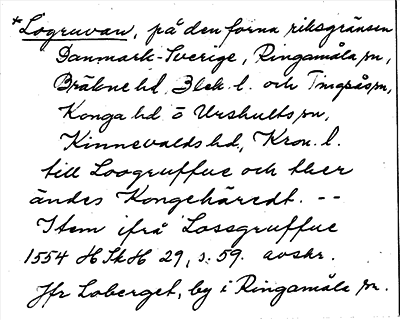 *Logruvan, på den forna riksgränsen
Danmark-Sverige, Ringamåla sn,
Bräkne hd, Blek. l. och Tingsås sn,
Konga hd o Urshults sn,
Kinnevalds hd, Kron. l.
till Loogruffue och ther
ändes Kongehäredt. --
Item ifrå Lossgruffue
1554 HSkH 29, s. 59. avskr.
Jfr Loberget, by i Ringamåla sn.